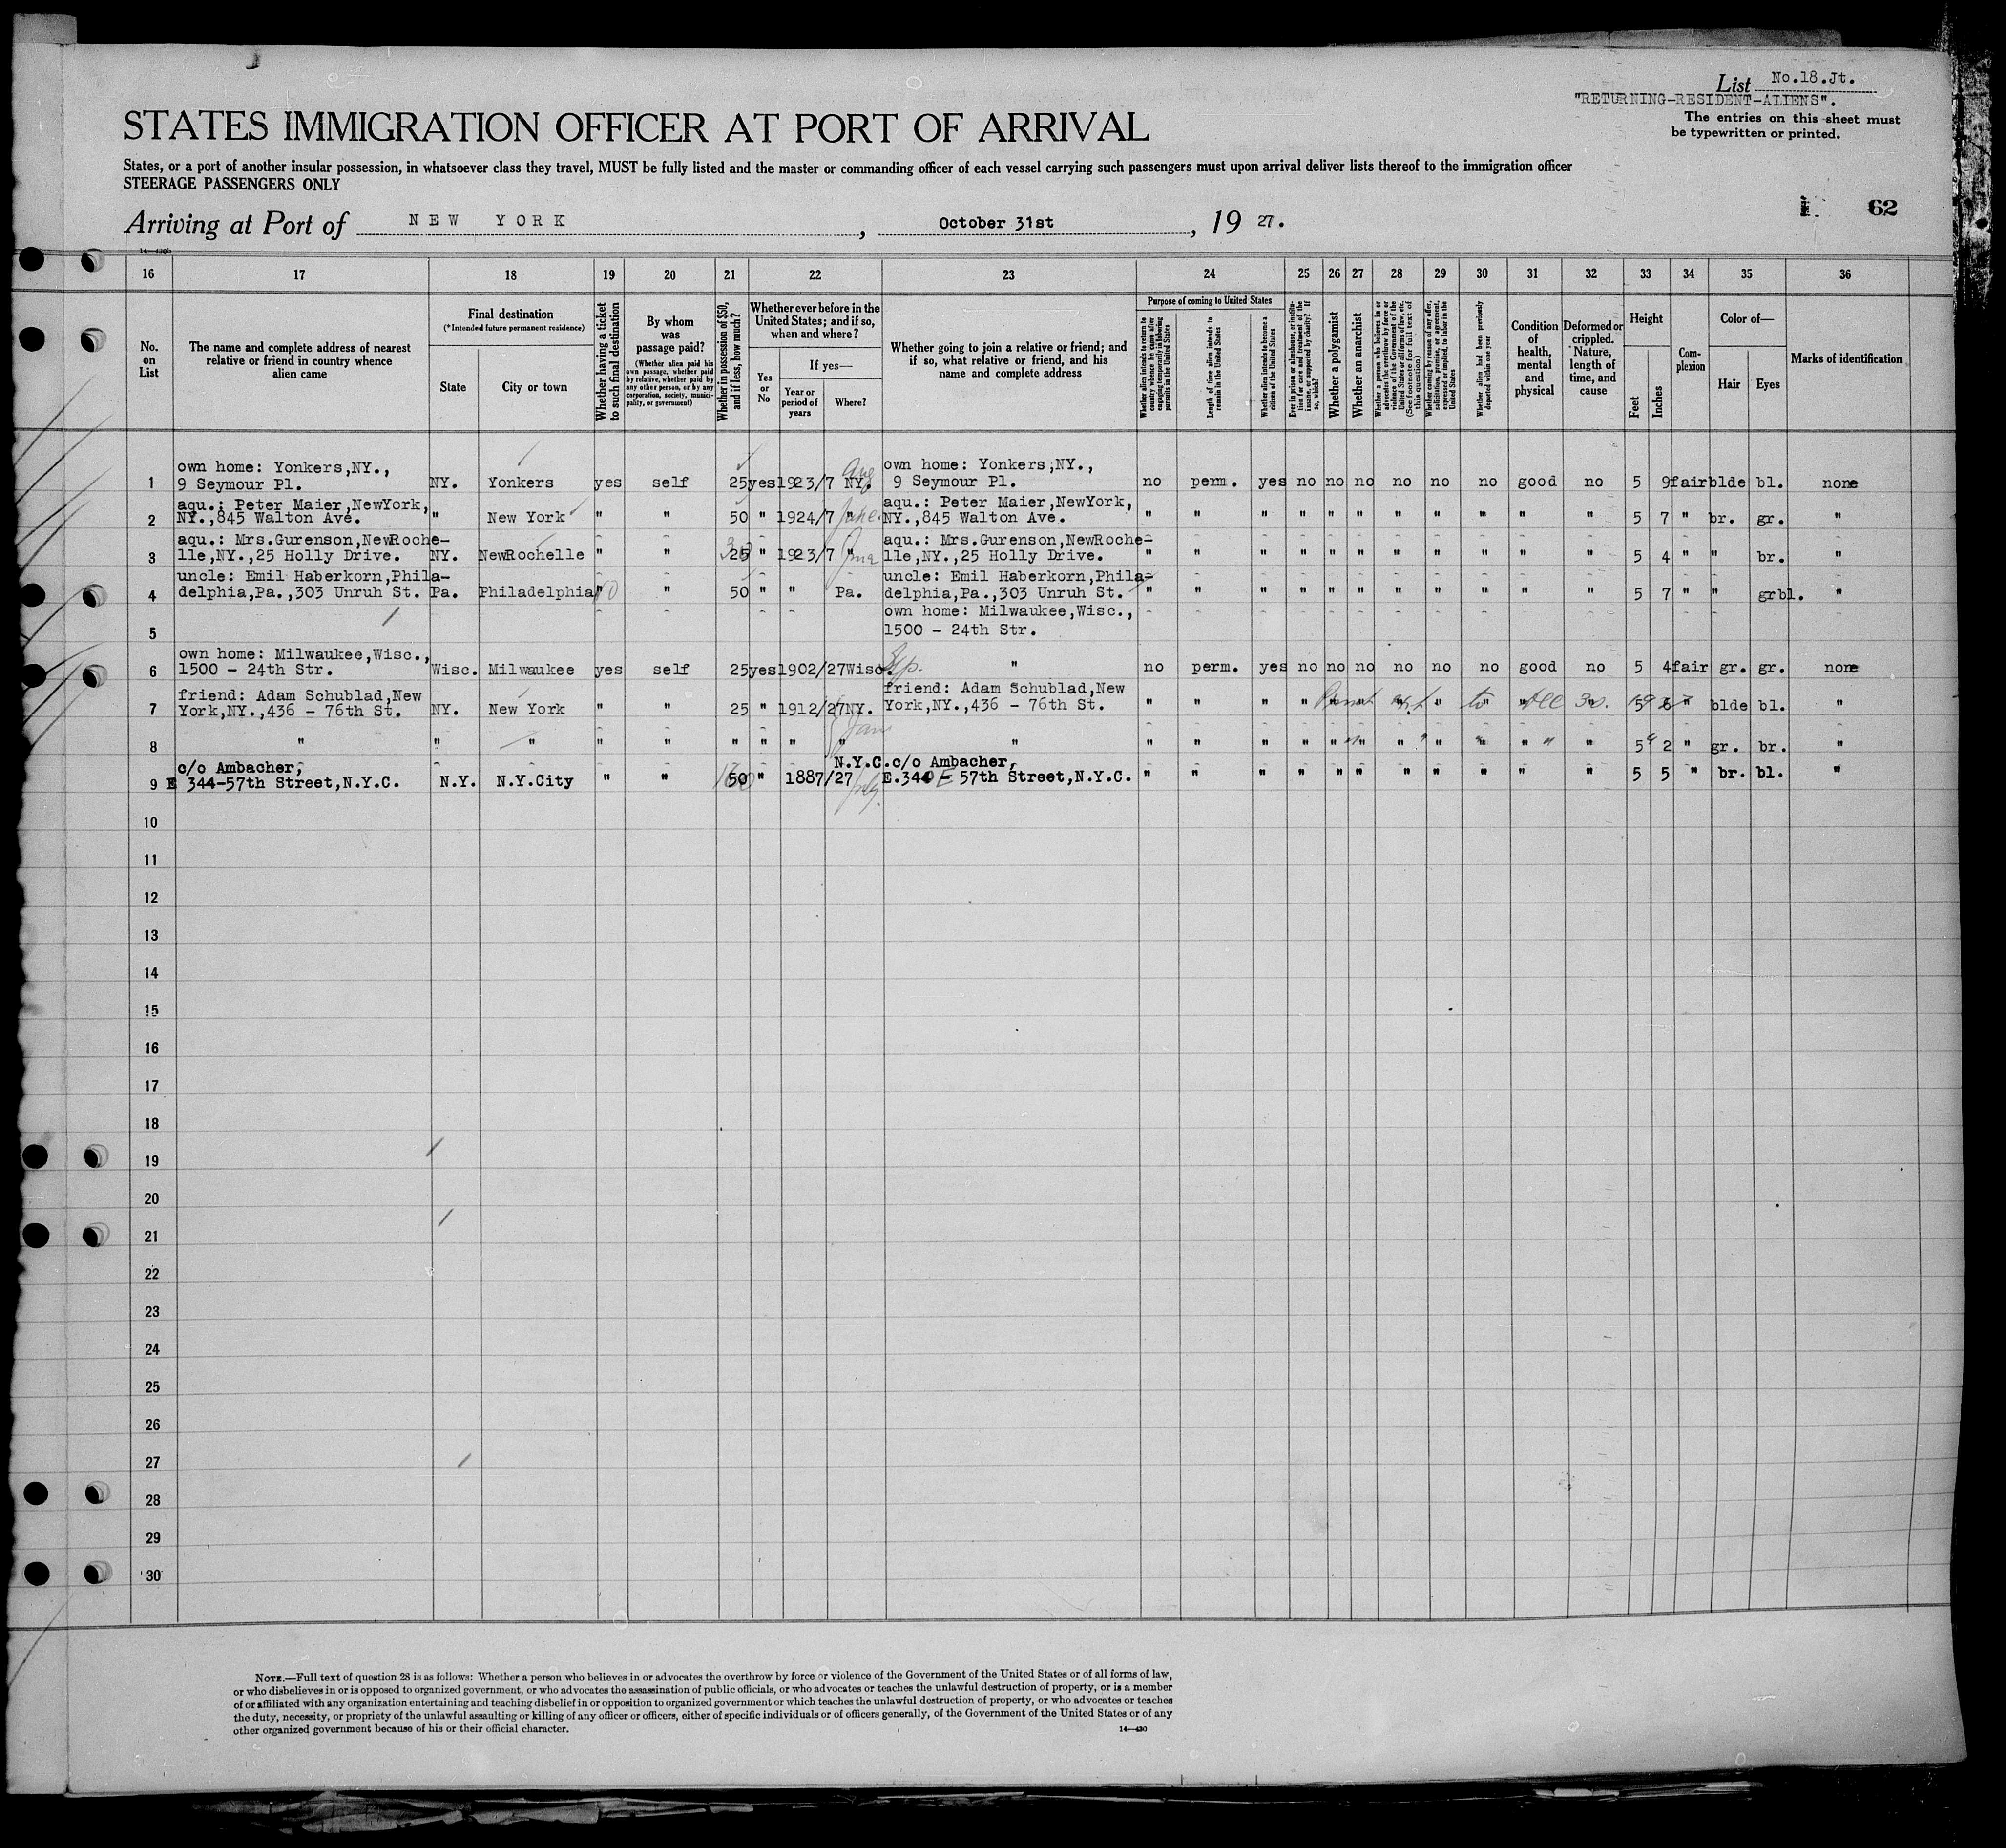 List No.18.Jt.
"RETURNING-RESIDENT-ALIENS".
The entries on this sheet must
be typewritten or printed.
STATES IMMIGRATION OFFICER AT PORT OF ARRIVAL
States, or a port of another insular possession, in whatsoever class they travel, MUST be fully listed and the master or commanding officer of each vessel carrying such passengers must upon arrival deliver lists thereof to the immigration officer
STEERAGE PASSENGERS ONLY
62
Arriving at Port of NEW YORK, October 31st, 19 27.
16 17 18 19 20 21 22 23 24 25 26 27 28 29 30 31 32 33 34 35 36
No. on List
The name and complete address of nearest relative or friend in country whence alien came
Final destination
(*Intended future permanent residence)
State
City or town
Whether having a ticket to such final destination
By whom was passage paid?
(Whether alien paid his own passage, whether paid by relative, whether paid by any other person, or by any corporation, society, municipality, or government)
Whether in possession of $50, and if less, how much?
Whether ever before in the United States; and if so, when and where?
Yes or No
If yes—
Year or period of years
Where?
Whether going to join a relative or friend; and if so, what relative or friend, and his name and complete address
Purpose of coming to United States
Whether alien intends to return to country whence he came after engaging temporarily in laboring pursuits in the United States
Length of time alien intends to remain in the United States
Whether alien intends to become a citizen of the United States
Whether a polygamist
Whether an anarchist
Whether alien had been previously deported within one year
Condition of health, mental and physical
Deformed or crippled. Nature, length of time, and cause
Height
Feet
Inches
Complexion
Color of—
Hair
Eyes
Marks of identification
own home: Yonkers,NY., own home: Yonkers,NY.,
1 9 Seymour Pl. NY. Yonkers yes self 25 yes 1923/7 NY. 9 Seymour Pl. no perm. yes no no no no no no good no 5 9 fair blde bl. none
aqu.: Peter Maier,NewYork, aqu.: Peter Maier,NewYork,
2 NY.,845 Walton Ave. " New York " " 50 " 1924/7 " NY.,845 Walton Ave. " " " " " " " " " " " 5 7 " br. gr. "
aqu.: Mrs.Gurenson,NewRoche- aqu.: Mrs.Gurenson,NewRoche-
3 lle,NY.,25 Holly Drive. NY. NewRochelle " " 25 " 1923/7 " lle,NY.,25 Holly Drive. " " " " " " " " " " " 5 4 " " br. "
uncle: Emil Haberkorn,Phila- uncle: Emil Haberkorn,Phila-
4 delphia,Pa.,303 Unruh St. Pa. Philadelphia " " 50 " " Pa. delphia,Pa.,303 Unruh St. " " " " " " " " " " " 5 7 " " grbl. "
own home: Milwaukee,Wisc.,
5 1500 - 24th Str.
own home: Milwaukee,Wisc.,
6 1500 - 24th Str. Wisc. Milwaukee yes self 25 yes 1902/27 Wisc. " no perm. yes no no no no no no good no 5 4 fair gr. gr. none
friend: Adam Schublad,New friend: Adam Schublad,New
7 York,NY.,436 - 76th St. NY. New York " " 25 " 1912/27 NY. York,NY.,436 - 76th St. " " " " " " " " " " " 5 6 " blde bl. "
8 " " " " " " " " " " " " " " " " " " " " " 5 2 " gr. br. "
c/o Ambacher, N.Y.C. c/o Ambacher,
9 E 344-57th Street,N.Y.C. N.Y. N.Y.City " " 50 " 1887/27 E.340 E 57th Street,N.Y.C. " " " " " " " " " " " 5 5 " br. bl. "
10
11
12
13
14
15
16
17
18
19
20
21
22
23
24
25
26
27
28
29
30
NOTE.—Full text of question 28 is as follows: Whether a person who believes in or advocates the overthrow by force or violence of the Government of the United States or of all forms of law,
or who disbelieves in or is opposed to organized government, or who advocates the assassination of public officials, or who advocates or teaches the unlawful destruction of property, or is a member
of or affiliated with any organization entertaining and teaching disbelief in or opposition to organized government or which teaches the unlawful destruction of property, or who advocates or teaches
the duty, necessity, or propriety of the unlawful assaulting or killing of any officer or officers, either of specific individuals or of officers generally, of the Government of the United States or of any
other organized government because of his or their official character.
14—430